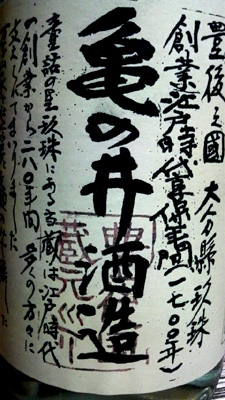 豊後之國 大分縣 玖珠
創業江戸時代享保年間(一七〇〇年)
亀の井酒造
童話の里玖珠にある蔵は江戸時代
の創業から二八〇年間 多くの方々に
支えられてまいりました
蔵元